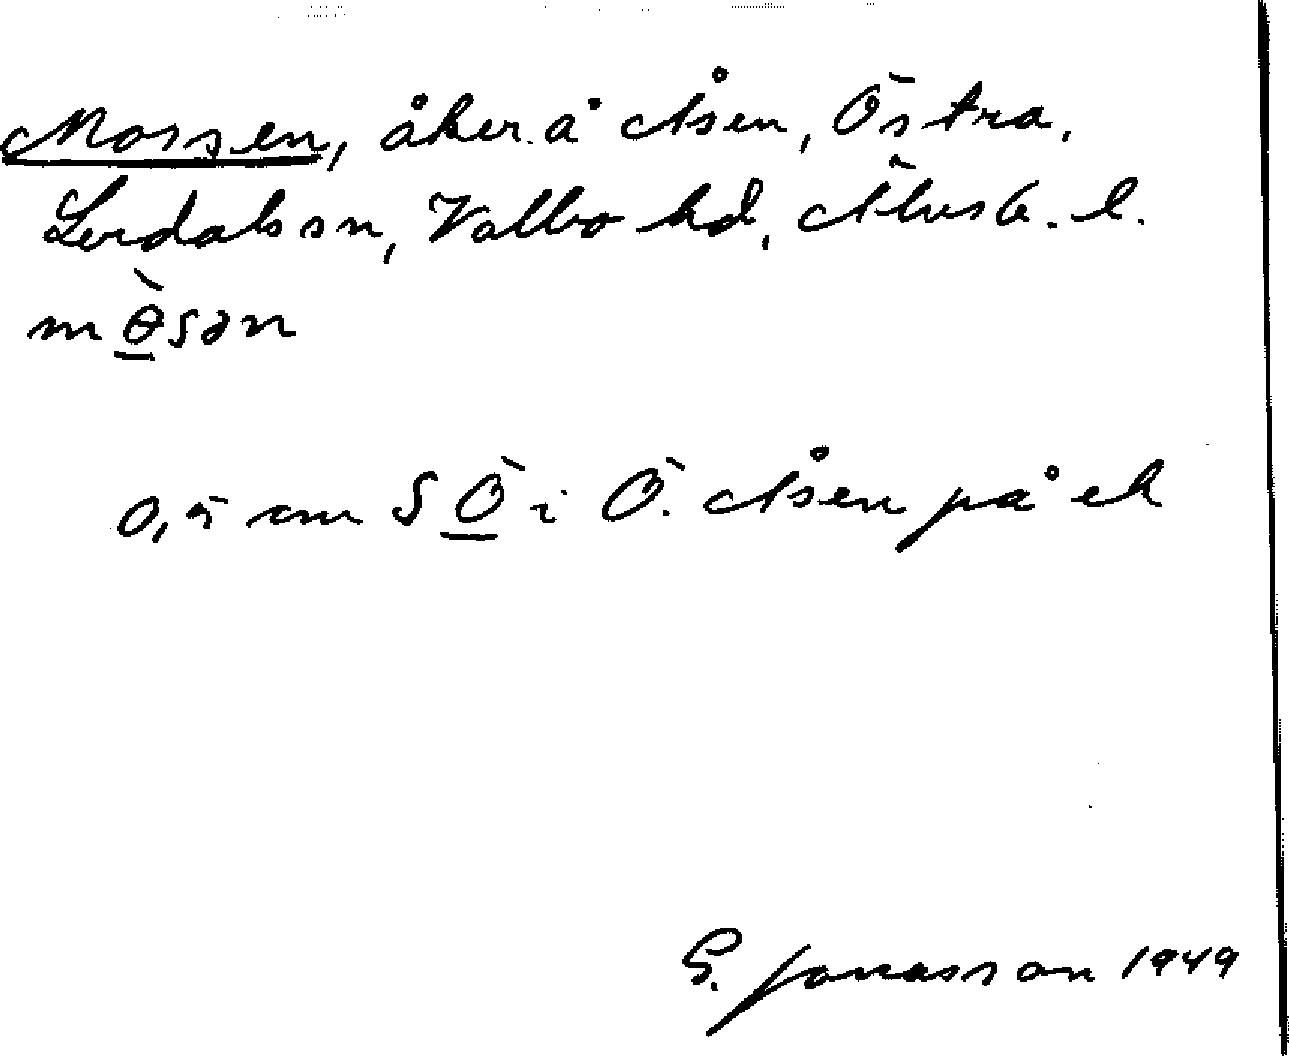 Mossen, åker å Åsen, Östra,
Lerdals sn, Valbo hd, Älvsb. l.
mɵ̀sən
0,5 cm S Ö i Ö. Åsen på ek
G. Jonasson 1949